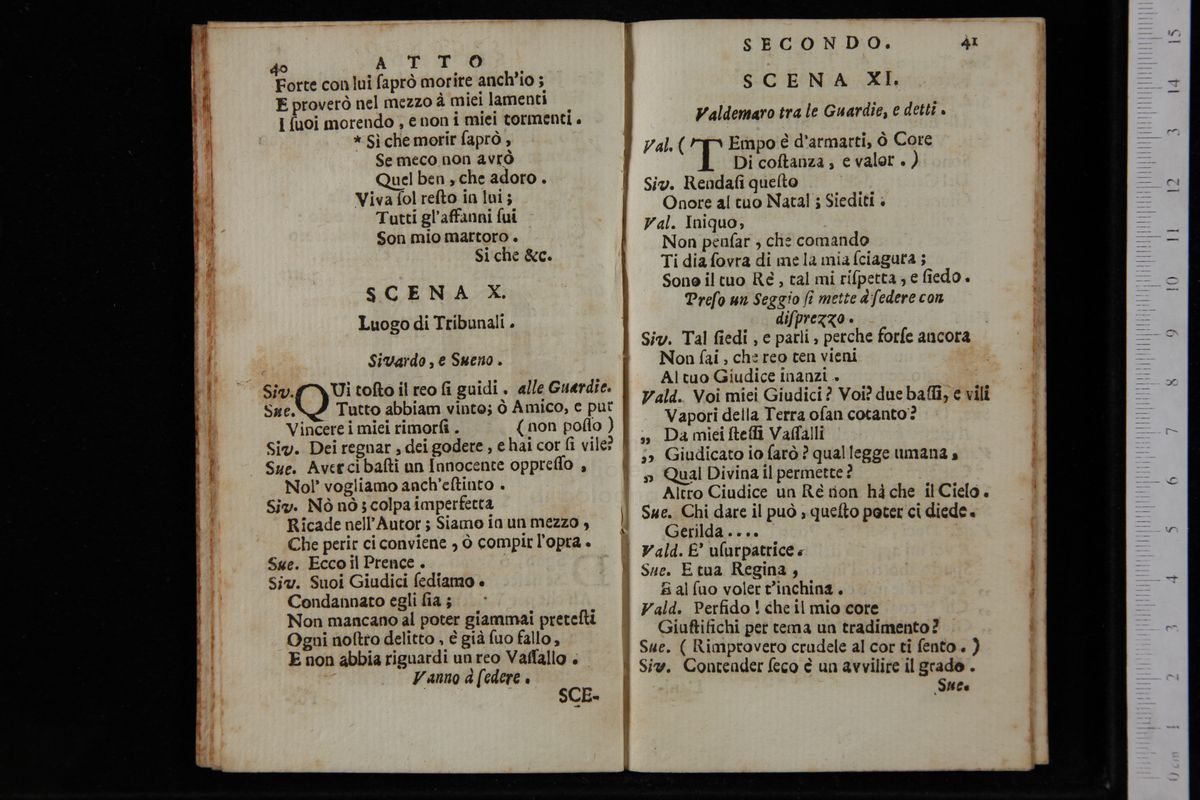 40 ATTO
Forte con lui ſaprò morire anch'io ;
E proverò nel mezzo à miei lamenti
I ſuoi morendo , e non i miei tormenti .
* Sì che morir ſaprò ,
Se meco non avrò
Quel ben , che adoro .
Viva ſol reſto in lui ;
Tutti gl'affanni ſui
Son mio martoro .
Si che &c.
SCENA X.
Luogo di Tribunali .
Sivardo, e Sueno .
Siv. QUi toſto il reo ſi guidi . alle Guardie.
Sue. Tutto abbiam vinto; ò Amico, e pur
Vincere i miei rimorſi . ( non poſſo )
Siv. Dei regnar , dei godere , e hai cor ſi vile?
Sue. Averci baſti un Innocente oppreſſo ,
Nol' vogliamo anch'eſtinto .
Siv. Nò nò ; colpa imperfetta
Ricade nell'Autor ; Siamo in un mezzo ,
Che perir ci conviene , ò compir l'opra .
Sue. Ecco il Prence .
Siv. Suoi Giudici ſediamo .
Condannato egli ſia ;
Non mancano al poter giammai preteſti
Ogni noſtro delitto , è già ſuo fallo ,
E non abbia riguardi un reo Vaſſallo .
Vanno à ſedere .
SCE-
SECONDO. 41
SCENA XI.
Valdemaro tra le Guardie, e detti .
Val. ( TEmpo è d'armarti, ò Core
Di coſtanza , e valor . )
Siv. Rendaſi queſto
Onore al tuo Natal ; Siediti .
Val. Iniquo,
Non penſar , che comando
Ti dia ſovra di me la mia ſciagura ;
Sono il tuo Rè , tal mi riſpetta , e ſiedo .
Preſo un Seggio ſi mette à ſedere con
diſprezzo .
Siv. Tal ſiedi , e parli , perche forſe ancora
Non ſai , che reo ten vieni
Al tuo Giudice inanzi .
Vald. Voi miei Giudici ? Voi? due baſſi, e vili
Vapori della Terra oſan cotanto ?
„ Da miei ſteſſi Vaſſalli
„ Giudicato io ſarò ? qual legge umana ,
„ Qual Divina il permette ?
Altro Ciudice un Rè non hà che il Cielo .
Sue. Chi dare il può , queſto poter ci diede .
Gerilda ....
Vald. E' uſurpatrice .
Sue. E tua Regina ,
E al ſuo voler t'inchina .
Vald. Perfido ! che il mio core
Giuſtifichi per tema un tradimento ?
Sue. ( Rimprovero crudele al cor ti ſento . )
Siv. Contender ſeco è un avvilire il grado .
Sue.
0 cm 1 2 3 4 5 6 7 8 9 10 11 12 13 14 15